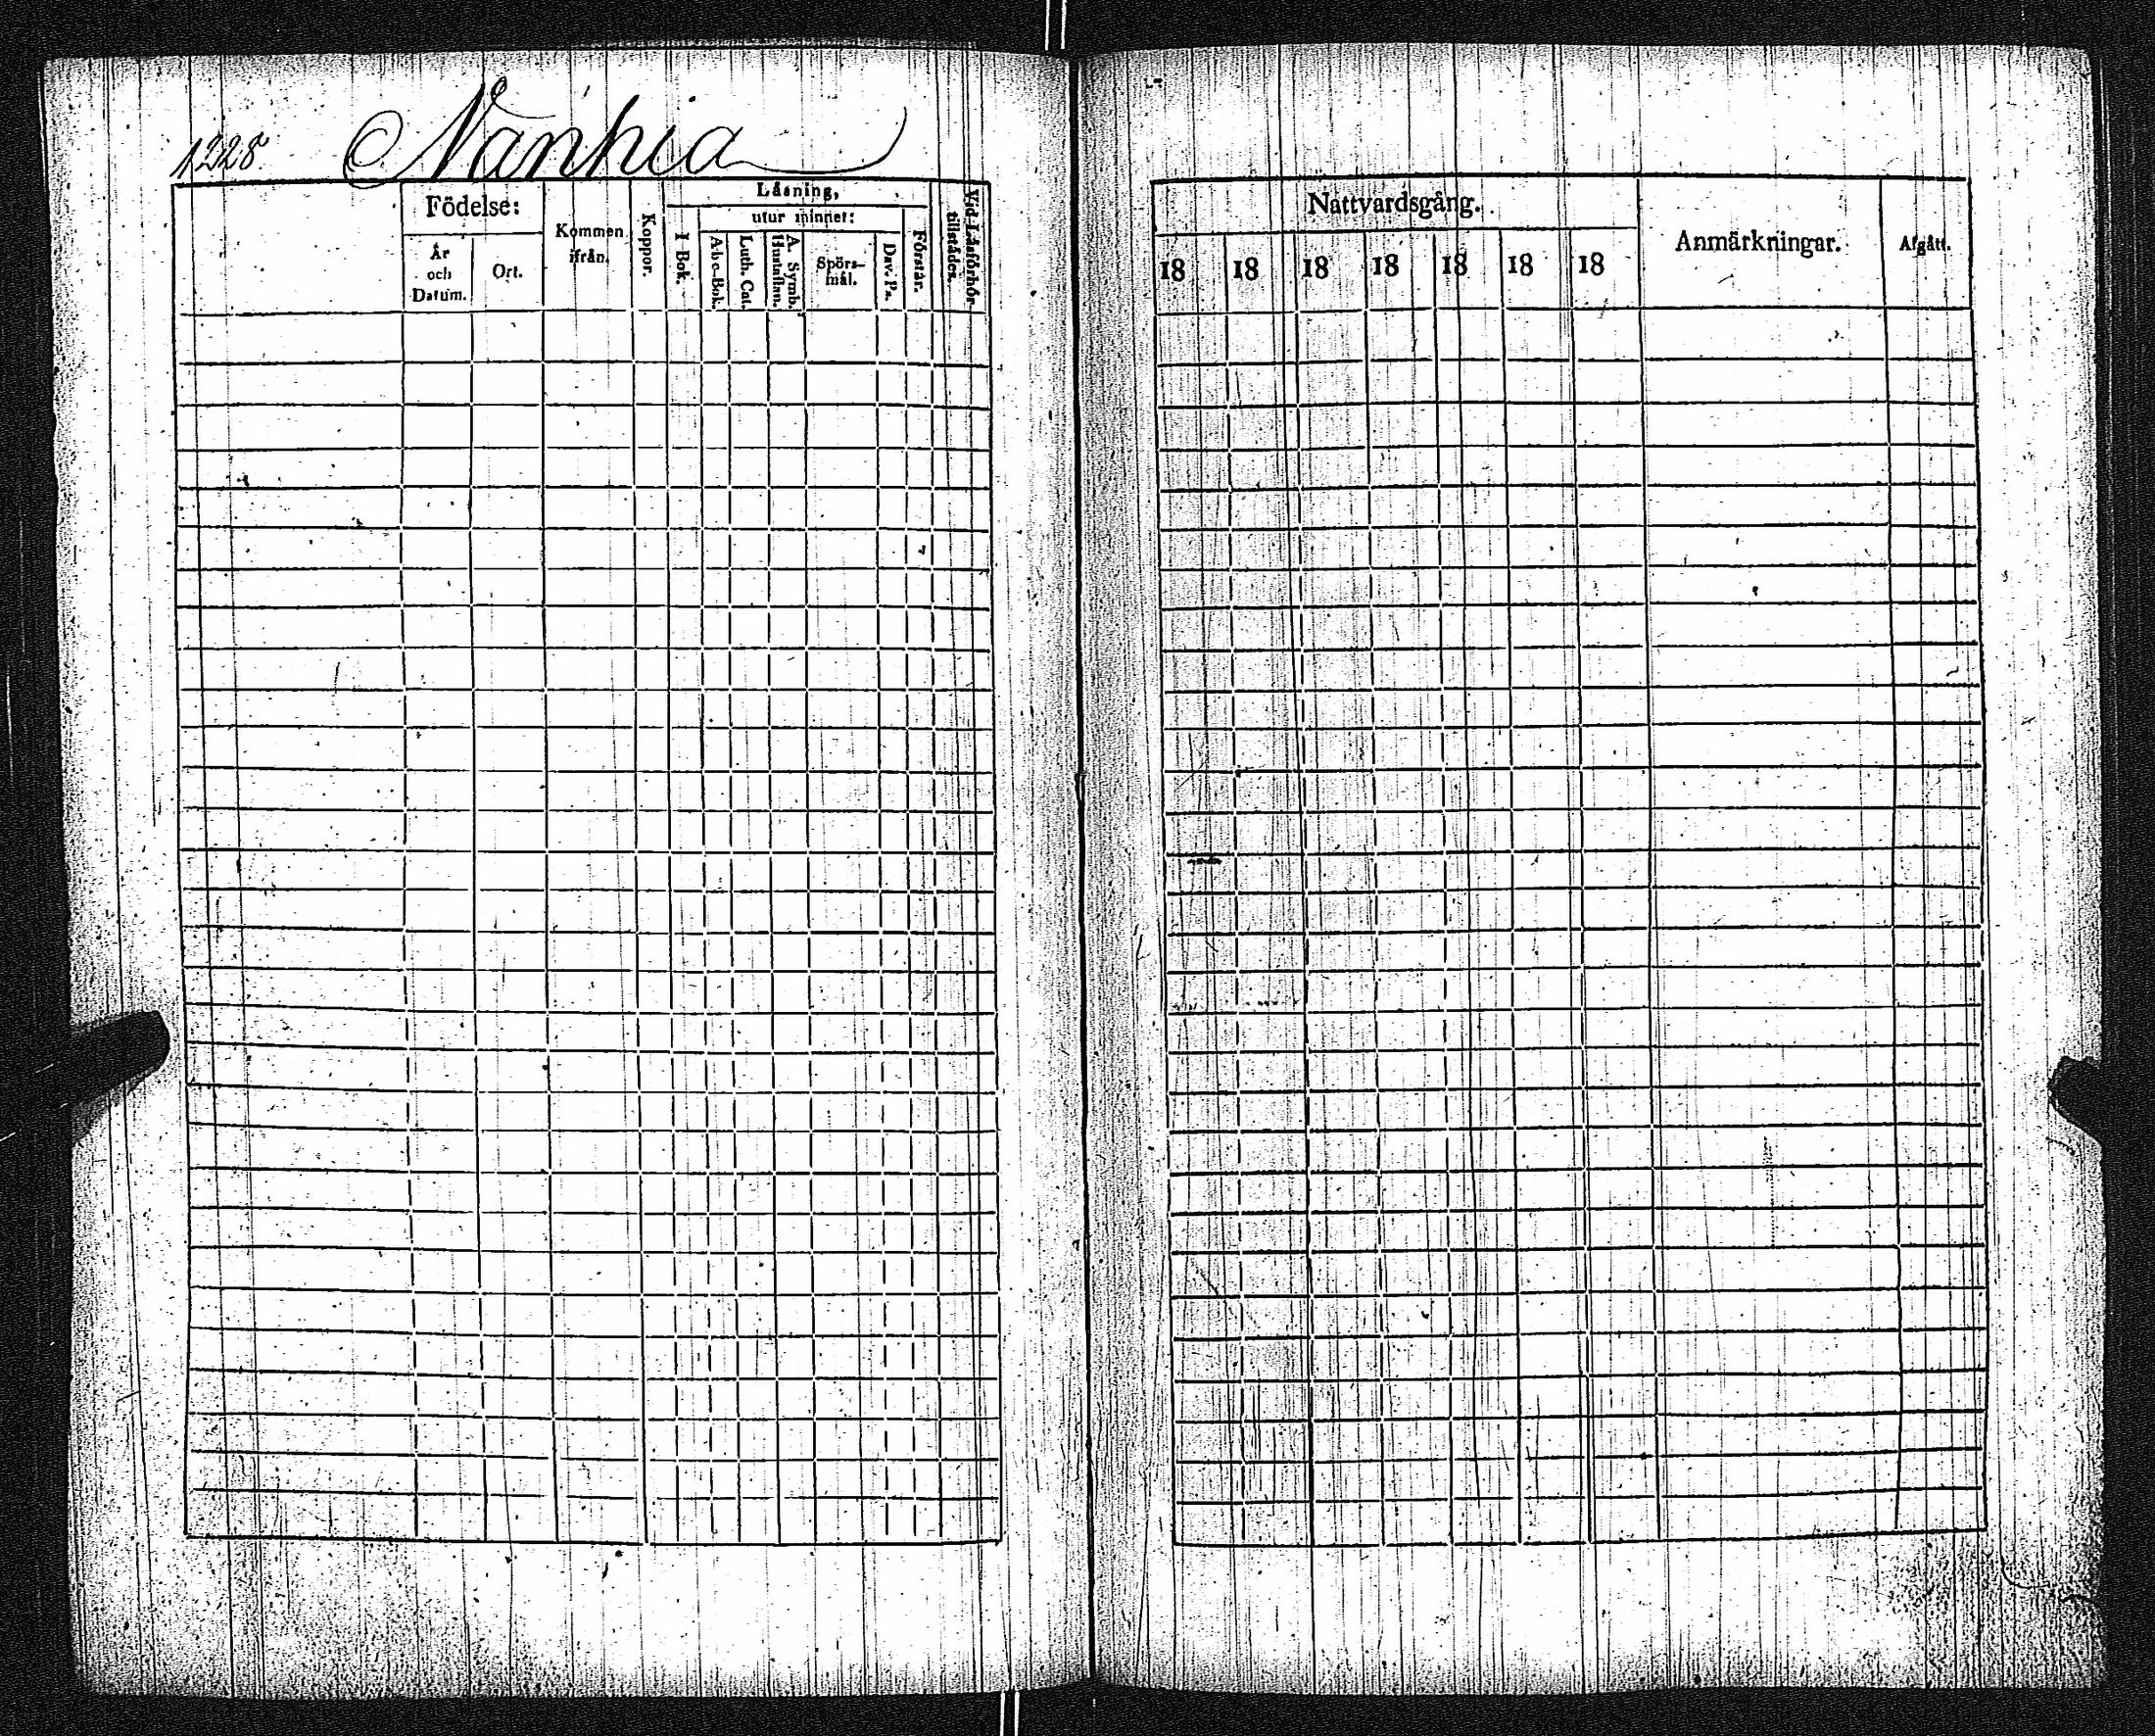 1228 Nanhia
Födelse:
År
och
Datum.
Ort.
Kommen
ifrån.
Koppor.
Läsning,
utur minnet:
I Bok.
A-b-c-Bok.
Luth. Cat.
A. Symb.
Hustaflan.
Spörs-
mål.
Dav. Ps.
Förstår.
Vid Läsförhör
tillstädes.
Nattvardsgång.
18 18 18 18 18 18 18
Anmärkningar.
Afgått.